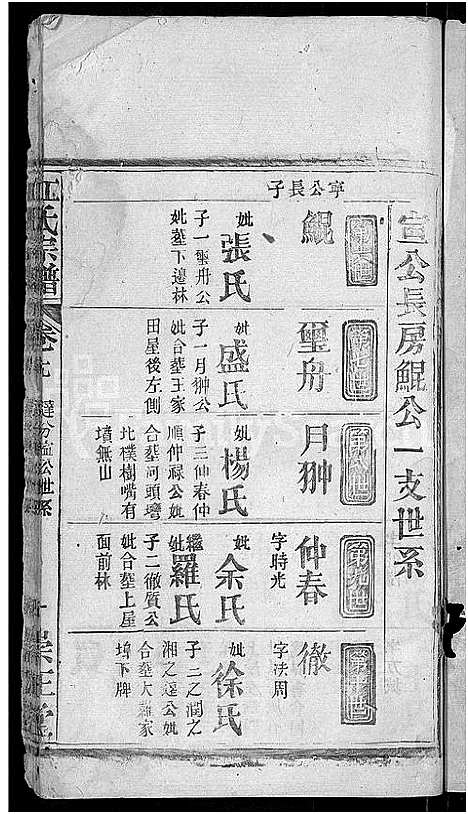 宣公長房鯤公一支世系
寧公長子
第六世
鯤
妣張氏
子一璽舟公
妣塟下邊林
第七世
璽舟
妣盛氏
子一月翀公
妣合塟王家
田屋後左側
第八世
月翀
妣楊氏
子三仲春仲
順仲祿公妣
合塟河頭壪
北樸樹嘴有
墳無山
第九世
仲春
字時光
妣余氏
繼妣羅氏
子二徹質公
妣合塟上屋
面前林
第十世
徹
字决周
妣徐氏
子二之潤之
湘之公妣
合塟大羅家
墳下牌
江氏宗譜
卷七
公世系